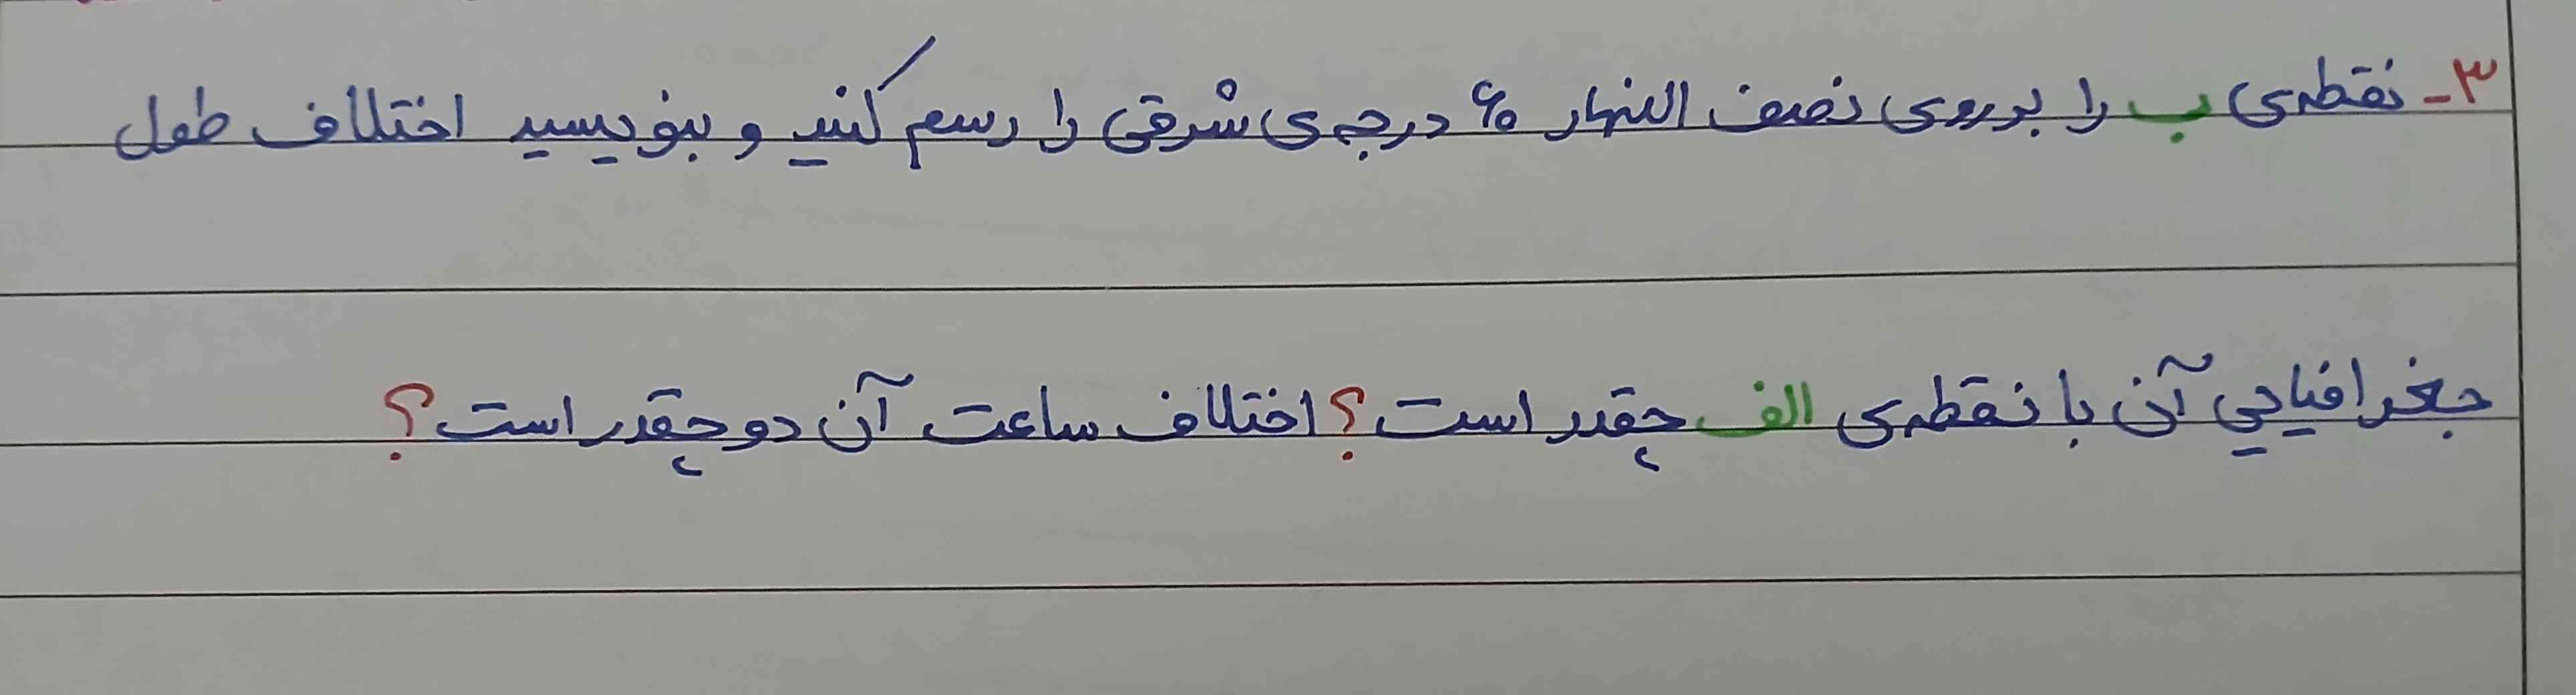 ۳- نقطه‌ی ب را بر روی نصف النهار ۶۰ درجه‌ی شرقی را رسم کنید و بنویسید اختلاف طول
جغرافیایی آن با نقطه‌ی الف چقدر است؟ اختلاف ساعت آن دو چقدر است؟